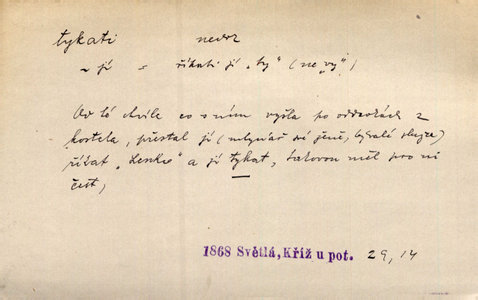 tykati nedok
~ jí = říkati jí „ty" (ne „vy")
Od té chvíle co s ním vyšla po oddavkách z
kostela, přestal jí (mlynář své ženě, bývalé služce)
říkat „Lenko" a jí tykat, takovou měl pro ni
čest,
1868 Světlá, Kříž u pot. 29, 14